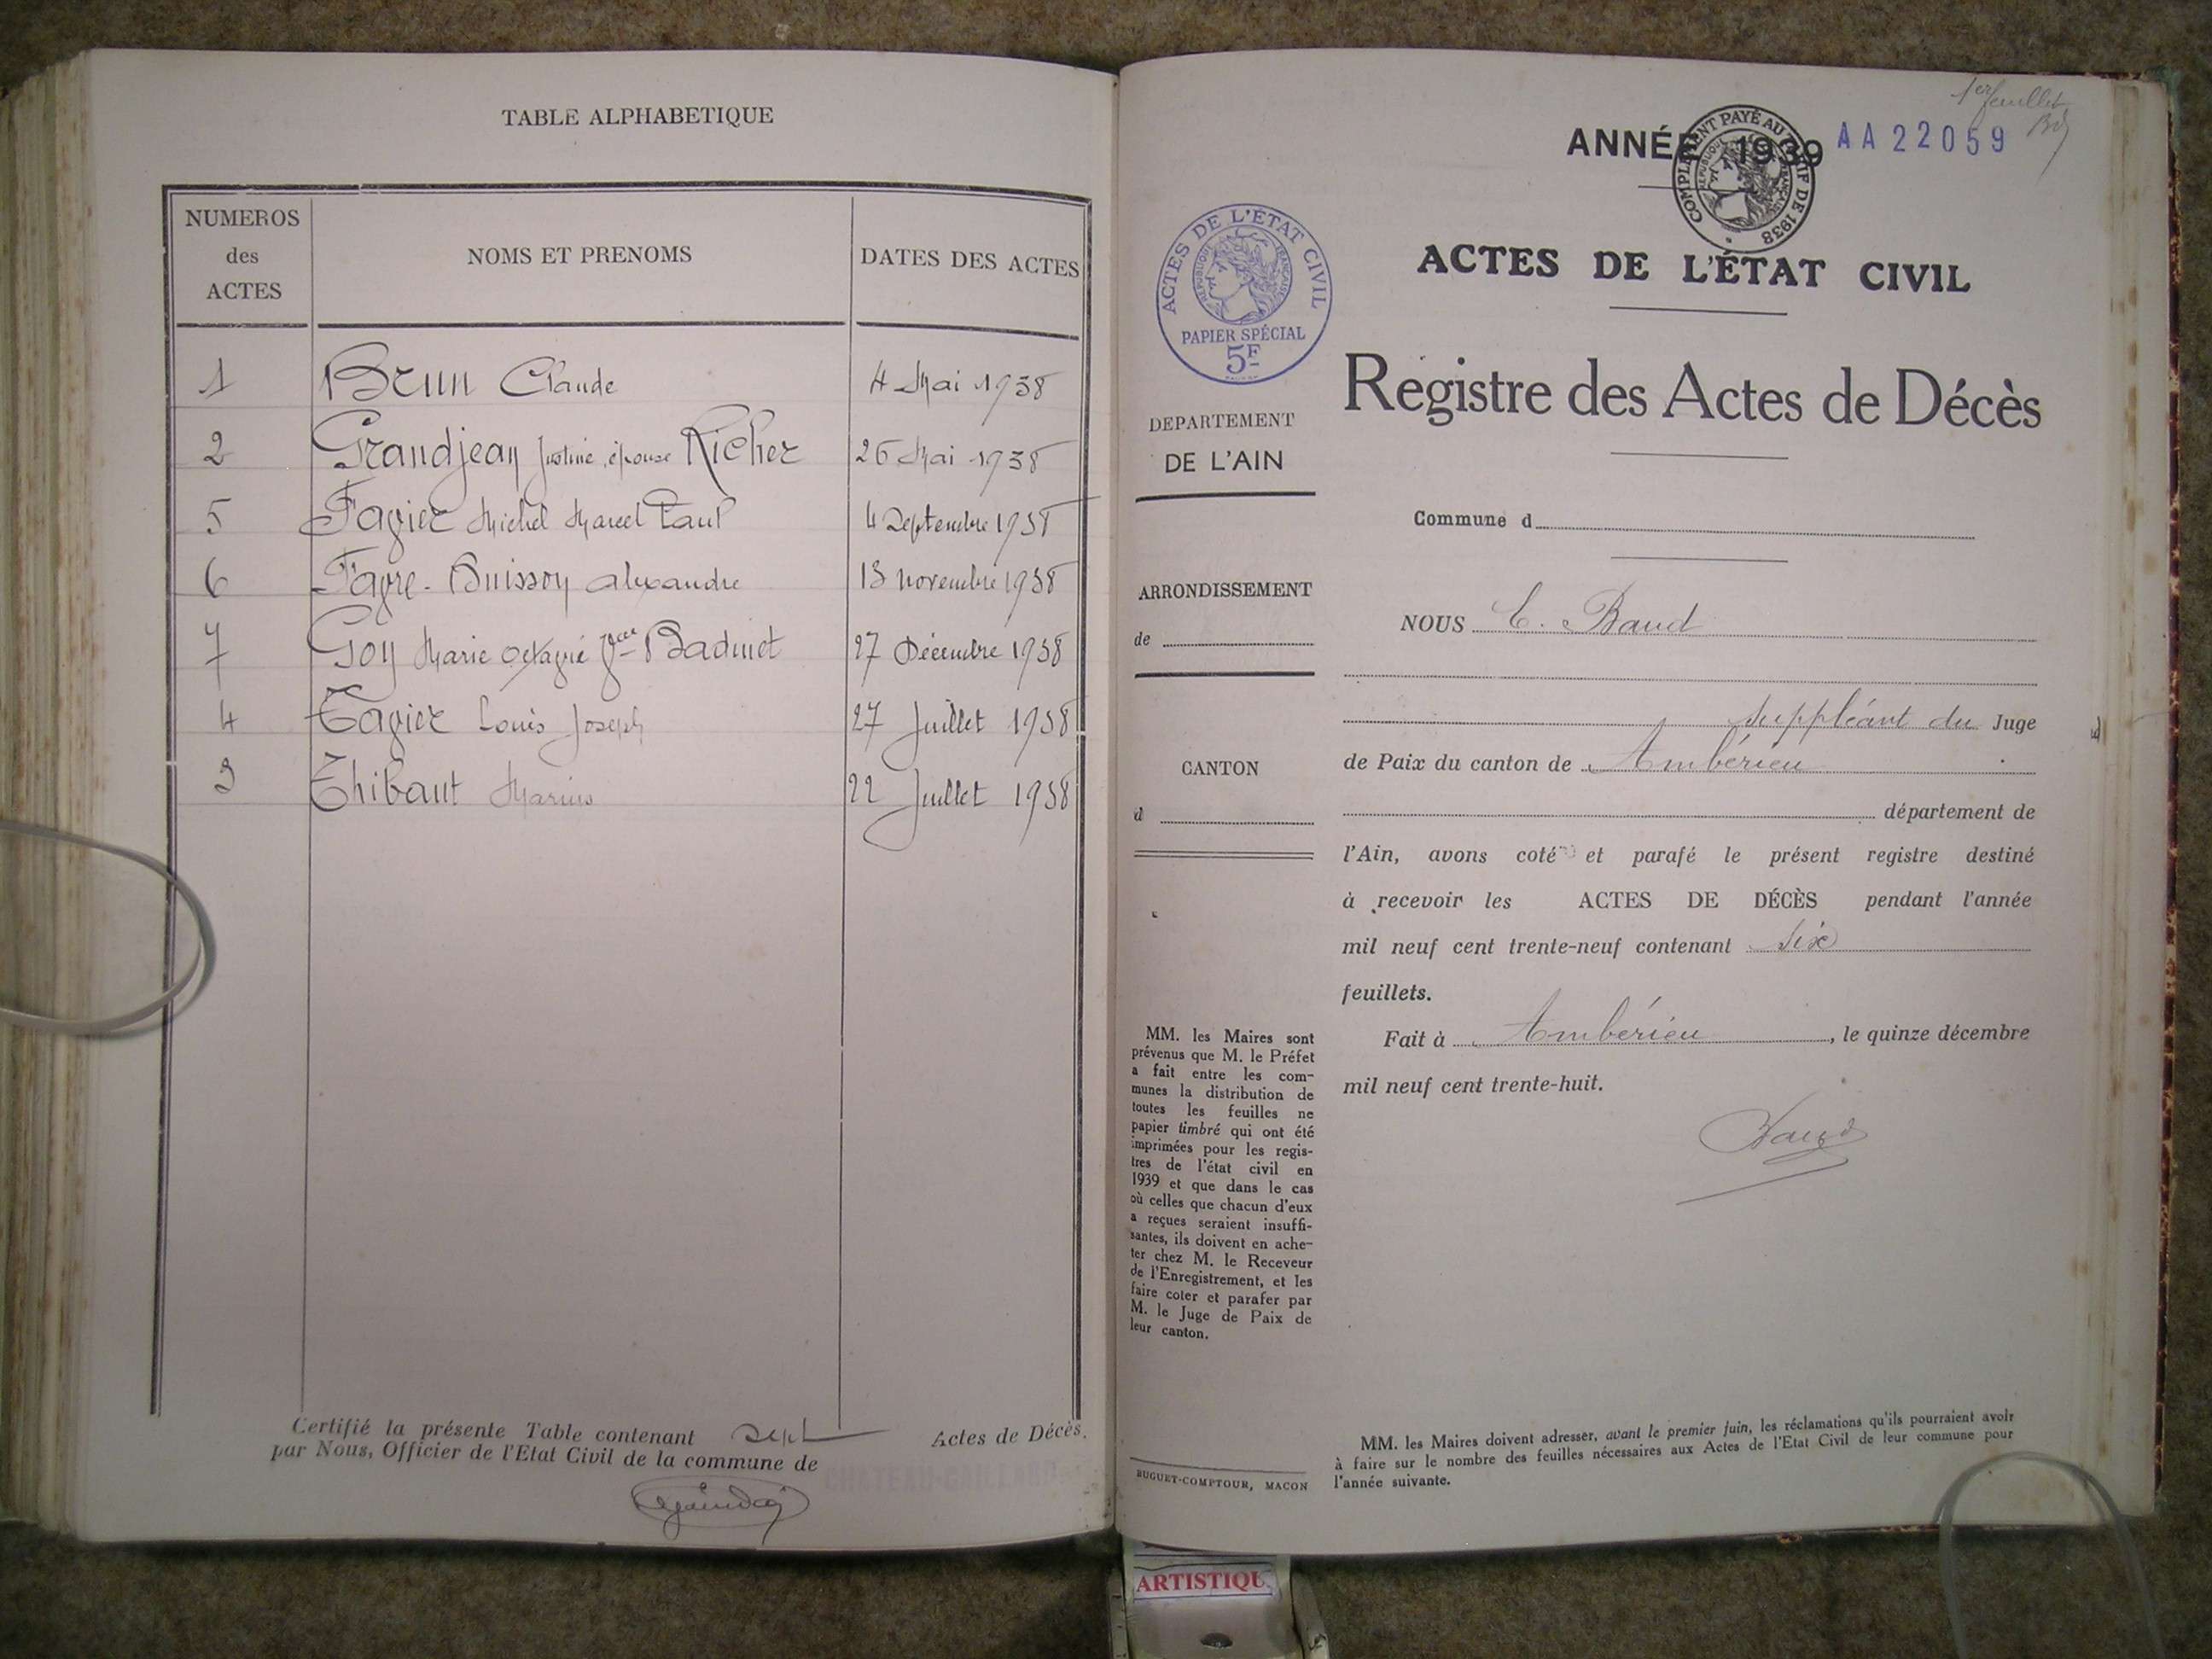 TABLE ALPHABETIQUE
NUMEROS
des
ACTES
NOMS ET PRENOMS
DATES DES ACTES
1 Brun Claude 4 Mai 1938
2 Grandjean Justine, épouse Richer 26 Mai 1938
5 Favier Michel Marcel Paul 4 Septembre 1938
6 Favre-Buisson alexandre 13 novembre 1938
7 Goy Marie Octavie Vve Badinet 27 Décembre 1938
4 Tavier Louis Joseph 27 Juillet 1938
3 Thibaut Marius 22 Juillet 1938
Certifié la présente Table contenant Sept Actes de Décès.
par Nous, Officier de l'Etat Civil de la commune de CHATEAU-GAILLARD
1er feuillet
ANNÉE 1939
AA22059
COMPLÉMENT PAYÉ AU TARIF DE 1938
RÉPUBLIQUE FRANÇAISE
ACTES DE L'ÉTAT CIVIL
RÉPUBLIQUE FRANÇAISE
PAPIER SPÉCIAL
5F
DEPARTEMENT
DE L'AIN
ARRONDISSEMENT
de
CANTON
d
MM. les Maires sont
prévenus que M. le Préfet
a fait entre les com-
munes la distribution de
toutes les feuilles ne
papier timbré qui ont été
imprimées pour les regis-
tres de l'état civil en
1939 et que dans le cas
où celles que chacun d'eux
a reçues seraient insuffi-
santes, ils doivent en ache-
ter chez M. le Receveur
de l'Enregistrement, et les
faire coter et parafer par
M. le Juge de Paix de
leur canton.
BUGUET-COMPTOUR, MACON
ACTES DE L'ÉTAT CIVIL
Registre des Actes de Décès
Commune d
NOUS C. Baud
suppléant du Juge
de Paix du canton de Ambérieu
département de
l'Ain, avons coté et parafé le présent registre destiné
à recevoir les ACTES DE DÉCÈS pendant l'année
mil neuf cent trente-neuf contenant six
feuillets.
Fait à Ambérieu, le quinze décembre
mil neuf cent trente-huit.
Baud
MM. les Maires doivent adresser, avant le premier juin, les réclamations qu'ils pourraient avoir
à faire sur le nombre des feuilles nécessaires aux Actes de l'Etat Civil de leur commune pour
l'année suivante.
ARTISTIQU